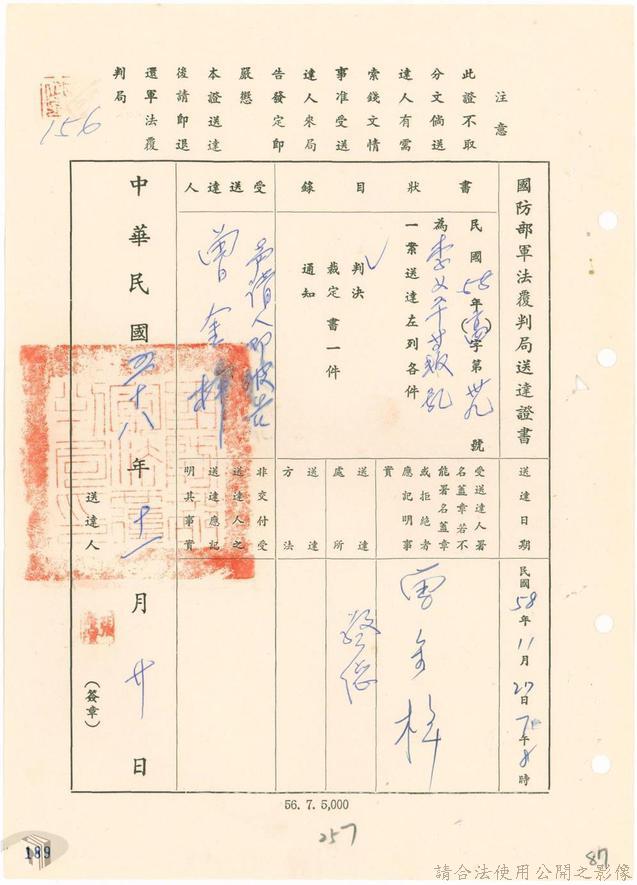 注意
此證不取
分文倘送
達人有需
索錢文情
事准受送
達人來局
告發定即
嚴懲
本證送達
後請即退
還軍法覆
判局
156
國防部軍法覆判局送達證書
送達日期
民國58年11月27日下午8時
書狀目錄
民國58年( )字第 號
為李 等叛亂
一案送達左列各件
判決
裁定書一件
通知
受送達人署
名蓋章若不
能署名蓋章
或拒絕者
應記明事
實
曾金樟
送達處所
送達方法
受送達人
聲請人即被告
曾金樟
非交付受
送達人之
送達應記
明其事實
中華民國五十八年十一月廿日
送達人
(簽章)
56. 7. 5,000
257
87
189
請合法使用公開之影像